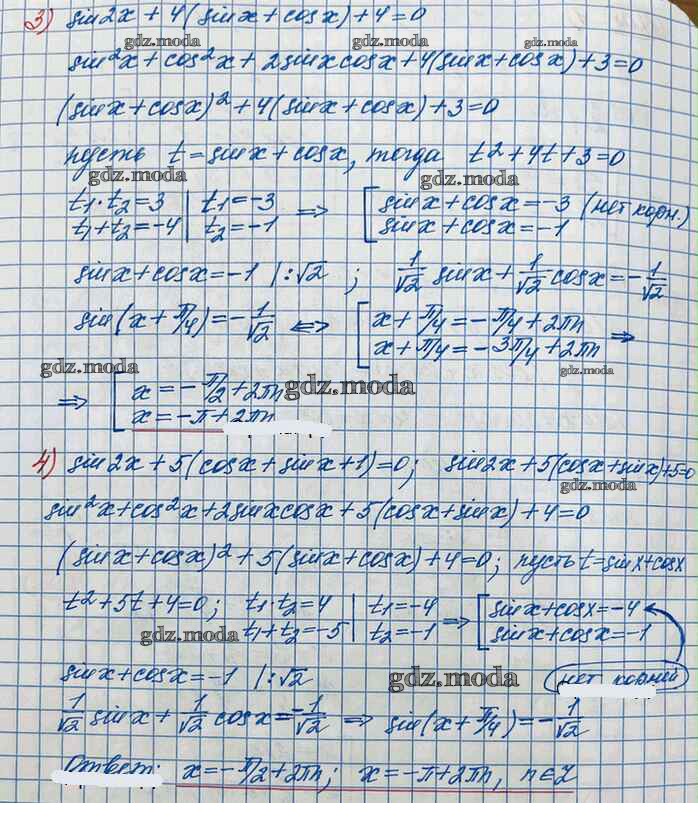 3) sin2x + 4(sinx + cosx) + 4 = 0
gdz.moda gdz.moda
sin²x + cos²x + 2sinxcosx + 4(sinx + cosx) + 3 = 0
(sinx + cosx)² + 4(sinx + cosx) + 3 = 0
gdz.moda
пусть t = sinx + cosx, тогда t² + 4t + 3 = 0
gdz.moda gdz.moda
t₁·t₂ = 3 | t₁ = -3 ⇒ [ sinx + cosx = -3 (нет корн.)
t₁ + t₂ = -4 | t₂ = -1 [ sinx + cosx = -1
sinx + cosx = -1 |:√2 ; 1/√2 sinx + 1/√2 cosx = -1/√2
gdz.moda
sin(x + π/4) = -1/√2 ⇔ [ x + π/4 = -π/4 + 2πn
[ x + π/4 = -3π/4 + 2πn ⇒
gdz.moda gdz.moda gdz.moda
⇒ [ x = -π/2 + 2πn
[ x = -π + 2πn
4) sin2x + 5(cosx + sinx + 1) = 0; sin2x + 5(cosx + sinx) + 5 = 0
gdz.moda
sin²x + cos²x + 2sinxcosx + 5(cosx + sinx) + 4 = 0
(sinx + cosx)² + 5(sinx + cosx) + 4 = 0; пусть t = sinx + cosx
t² + 5t + 4 = 0; t₁·t₂ = 4 | t₁ = -4 ⇒ [ sinx + cosx = -4
t₁ + t₂ = -5 | t₂ = -1 [ sinx + cosx = -1
gdz.moda gdz.moda
sinx + cosx = -1 |:√2 нет корней
gdz.moda
1/√2 sinx + 1/√2 cosx = -1/√2 ⇒ sin(x + π/4) = -1/√2
Ответ: x = -π/2 + 2πn; x = -π + 2πn, n∈Z